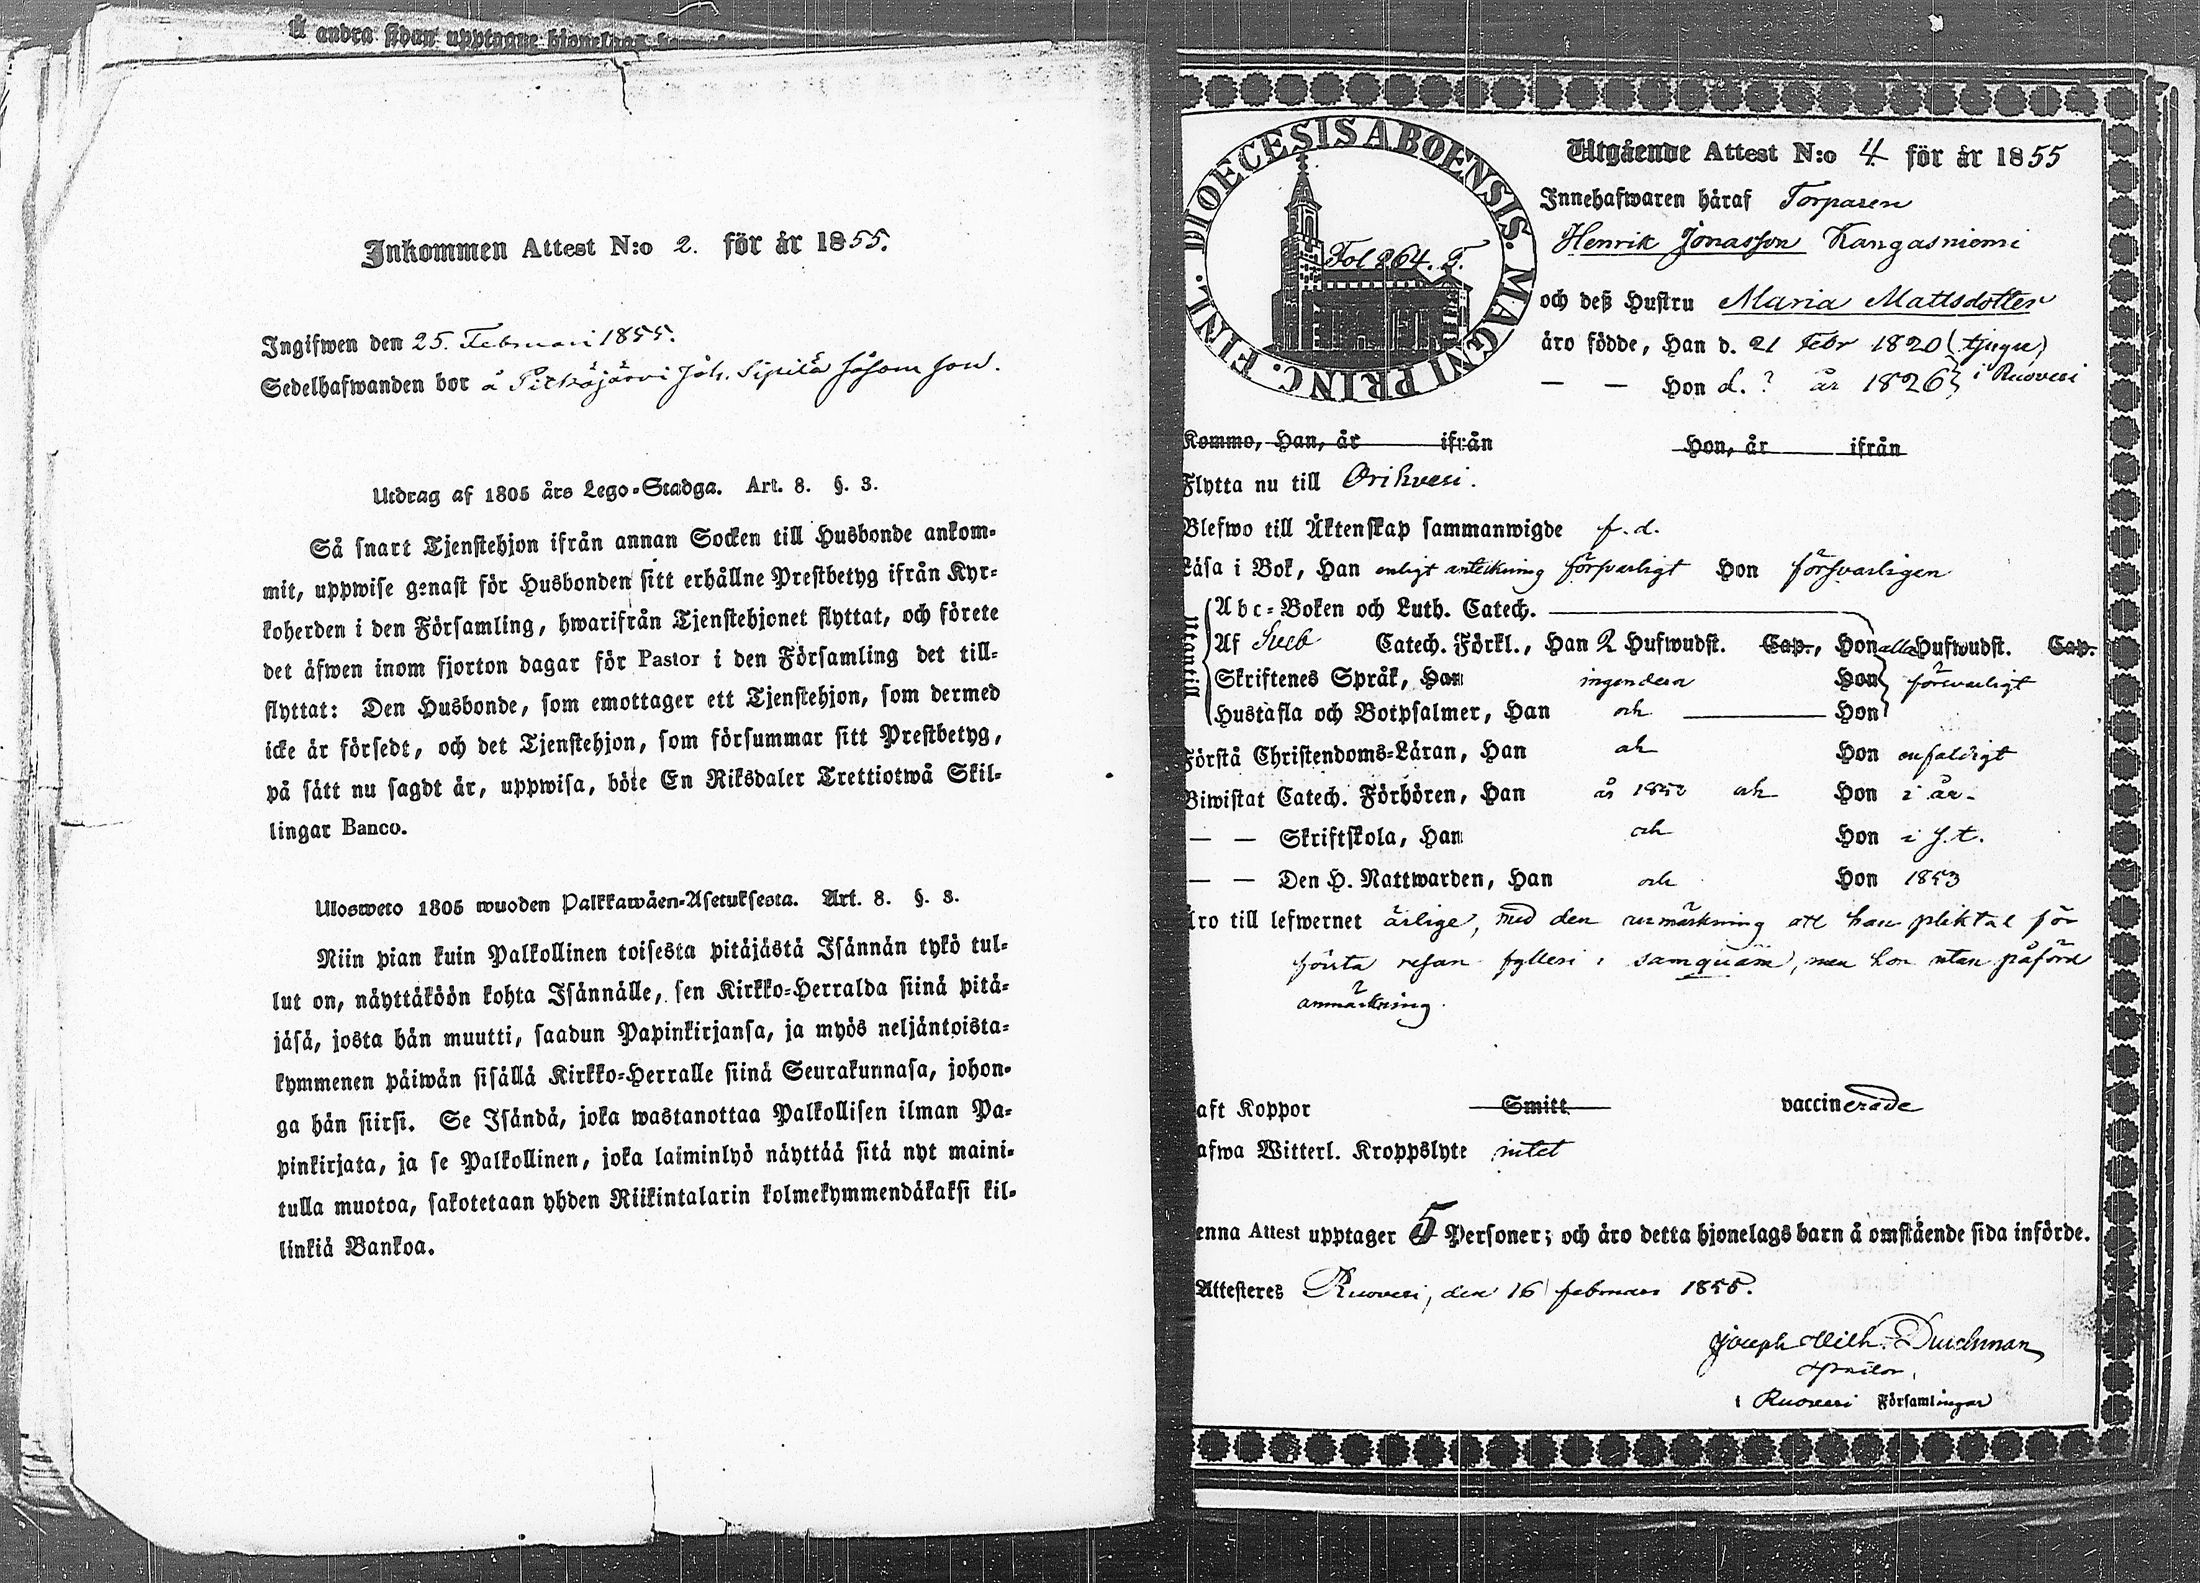 å andra sidan upptagne hjonelags
Inkommen Attest N:o 2. för år 1855.
Ingifwen den 25. Februari 1855.
Sedelhafwanden bor å Pitkäjärvi Joh. Sipilä såsom
Utdrag af 1805 års Lego-Stadga. Art. 8. §. 3.
Så snart Tjenstehjon ifrån annan Socken till Husbonde ankom-
mit, uppwise genast för Husbonden sitt erhållne Prestbetyg ifrån Kyr-
koherden i den Församling, hwarifrån Tjenstehjonet flyttat, och förete
det äfwen inom fjorton dagar för Pastor i den Församling det till-
flyttat: Den Husbonde, som emottager ett Tjenstehjon, som dermed
icke är försedt, och det Tjenstehjon, som försummar sitt Prestbetyg,
på sätt nu sagdt är, uppwisa, böte En Riksdaler Trettiotwå Skil-
lingar Banco.
Ulosweto 1805 wuoden Palkkawäen-Asetuksesta. Art. 8. §. 3.
Niin pian kuin Palkollinen toisesta pitäjästä Isännän tykö tul-
lut on, näyttäköön kohta Isännälle, sen Kirkko-Herralda siinä pitä-
jäsä, josta hän muutti, saadun Papinkirjansa, ja myös neljäntoista-
kymmenen päiwän sisällä Kirkko-Herralle siinä Seurakunnasa, johon-
ga hän siirsi. Se Isändä, joka wastanottaa Palkollisen ilman Pa-
pinkirjata, ja se Palkollinen, joka laiminlyö näyttää sitä nyt maini-
tulla muotoa, sakotetaan yhden Riikintalarin kolmekymmendäkaksi kil-
linkiä Bankoa.
DIOECESIS ABOENSIS. MAGNI PRINC. FINL.
Fol 264. T.
Utgående Attest N:o 4 för år 1855
Innehafwaren häraf Torparen
Henrik Jonasson Kangasniemi
och deß Hustru Maria Mattsdotter
äro födde, Han d. 21 Febr 1820 (tjugu)
— — Hon d. ? år 1826 } i Ruovesi
Kommo, Han, år ifrån Hon, år ifrån
Flytta nu till Orihvesi.
Blefwo till Äktenskap sammanwigde f. d.
Läsa i Bok, Han enligt anteckning försvarligt Hon försvarligen
Utantill
Abc-Boken och Luth. Catech.
Af Sveb Catech. Förkl., Han 2 Hufwudst. Cap., Hon alla Hufwudst. Cap.
Skriftenes Språk, Han ingendera Hon försvarligt
Hustafla och Botpsalmer, Han och Hon
Förstå Christendoms-Läran, Han och Hon enfaldigt
Biwistat Catech. Förhören, Han år 1852 och Hon i år
— — Skriftskola, Han och Hon i s. t.
— — Den H. Nattwarden, Han och Hon 1853
Äro till lefwernet ärlige, med den anmärkning att han pliktat för
första resan fylleri i samquäm, men hon utan påförd
anmärkning.
aft Koppor Smitt vaccinerade
afwa Witterl. Kroppslyte intet
enna Attest upptager 5 Personer; och äro detta hjonelags barn å omstående sida införde.
Attesteres Ruovesi, den 16 februari 1855.
Joseph Wilh.
i Ruovesi Församlingar